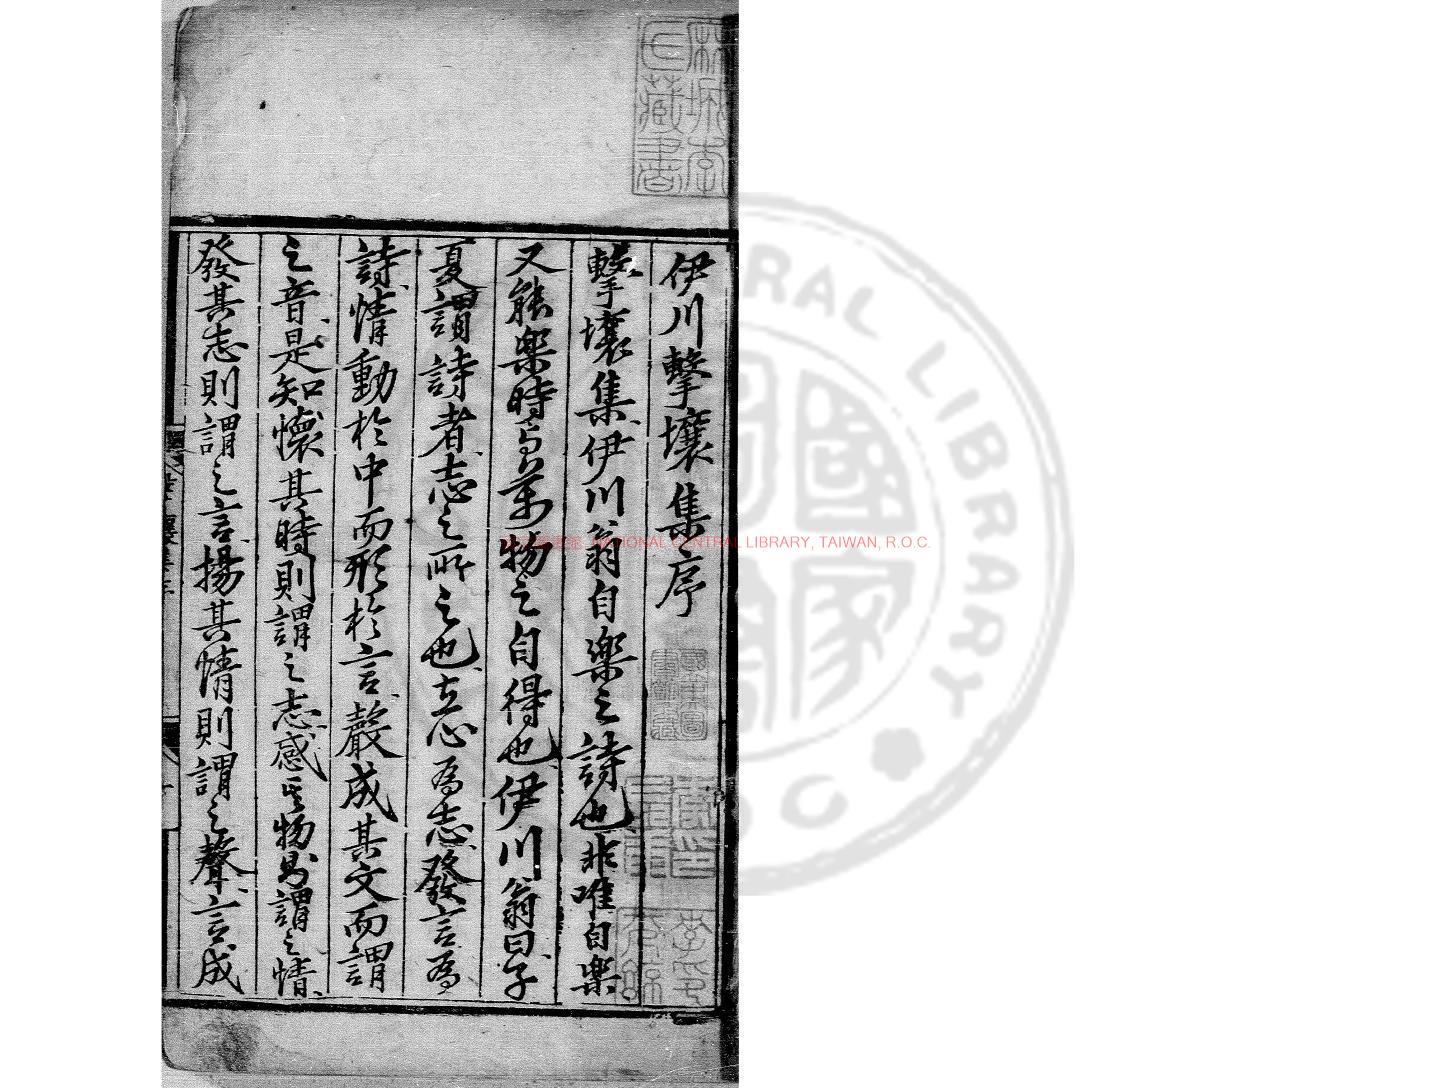 伊川擊壤集序
擊壤集伊川翁自樂之詩也非唯自樂
又能樂時與萬物之自得也伊川翁曰子
夏謂詩者志之所之也在心為志發言為
詩情動於中而形於言聲成其文而謂
之音是知懷其時則謂之志感其物則謂之情
發其志則謂之言揚其情則謂之聲言成
NATIONAL CENTRAL LIBRARY, TAIWAN, R.O.C.